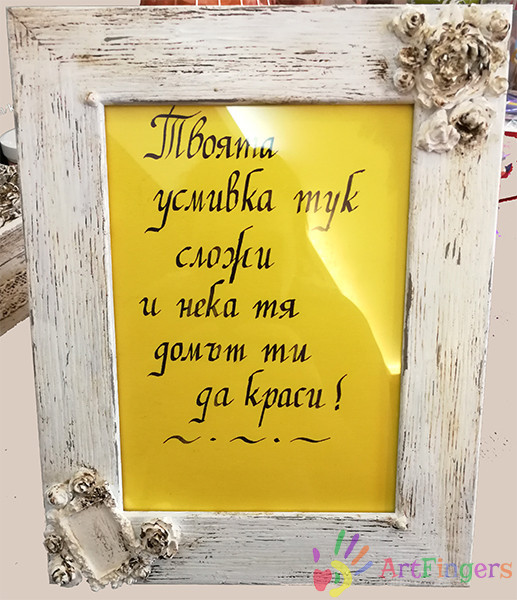 Твоята
усмивка тук
сложи
и нека тя
домът ти
да краси!
ArtFingers